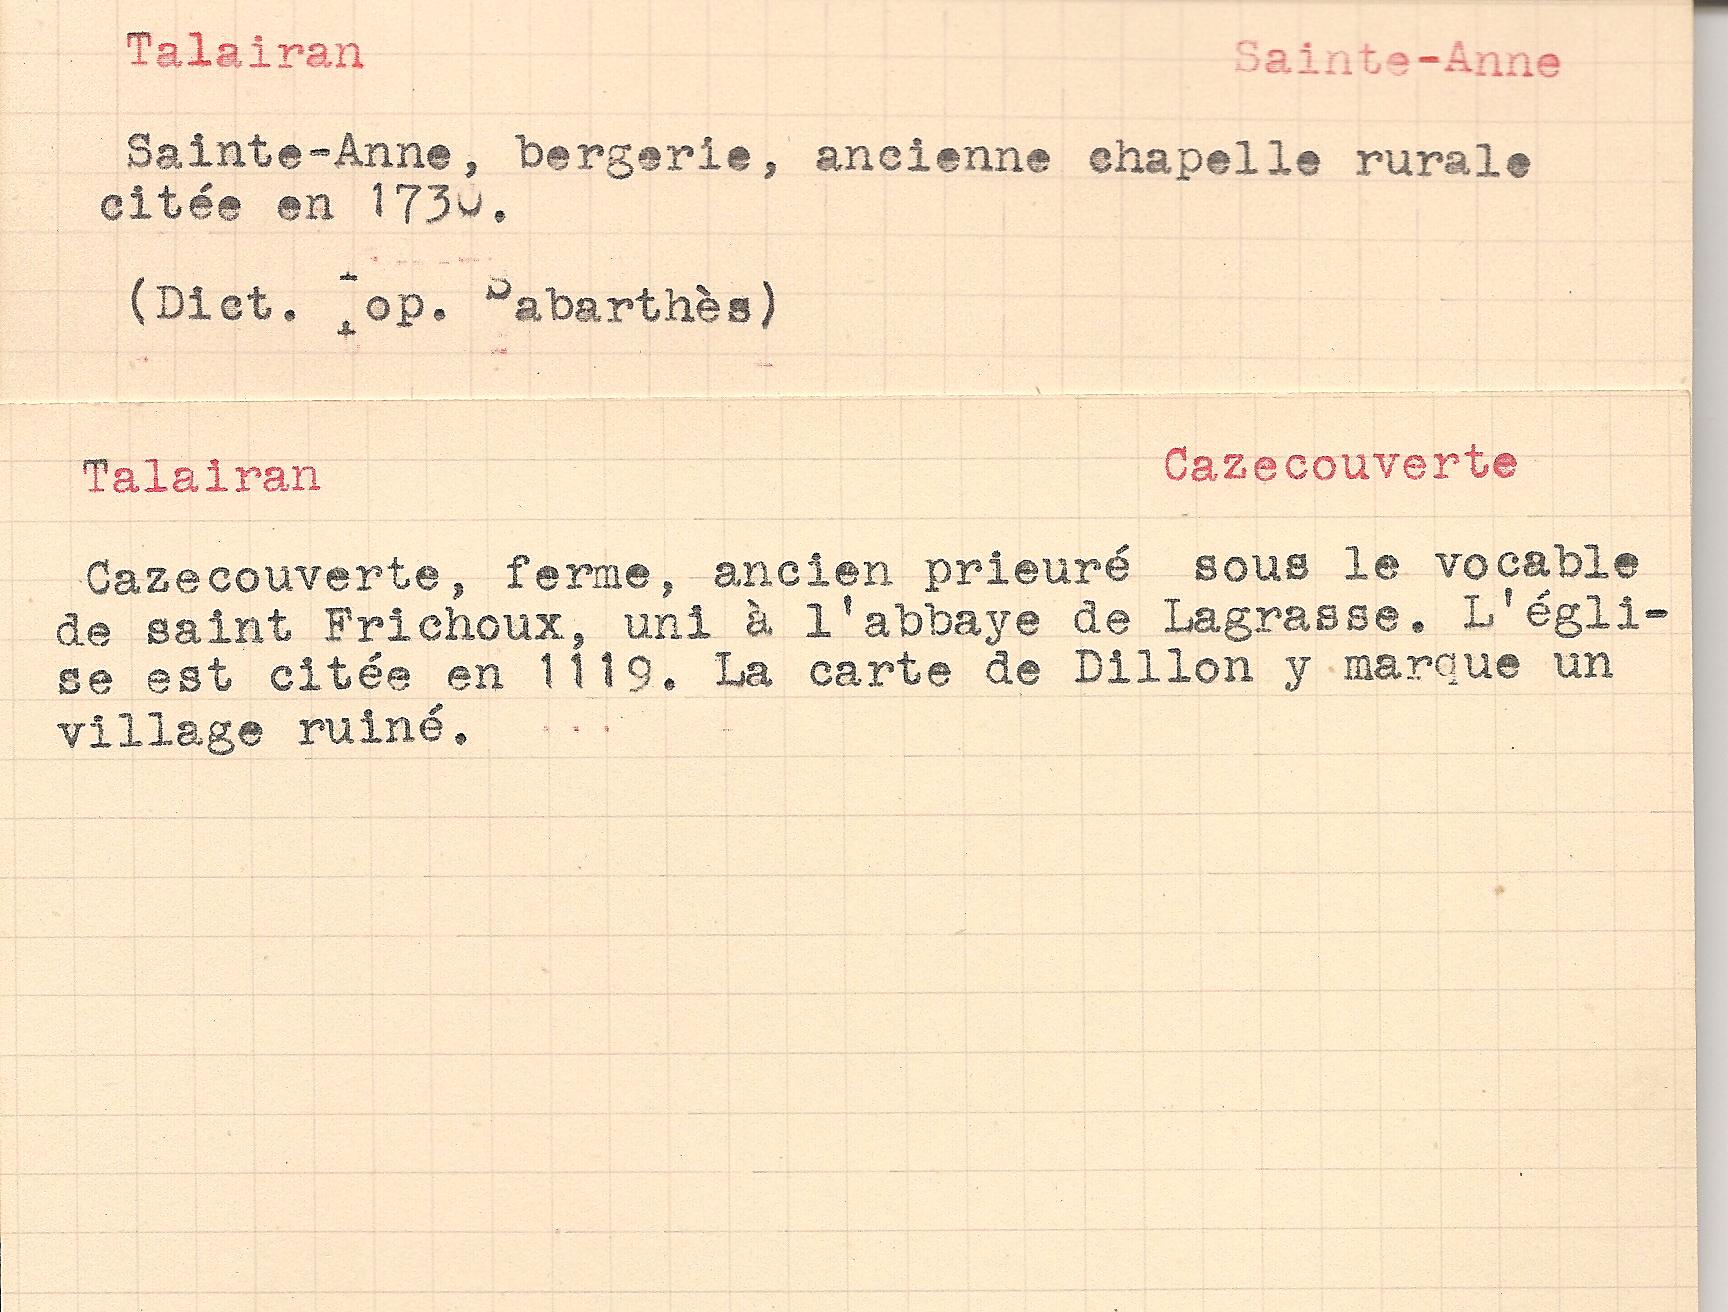 Talairan Sainte-Anne
Sainte-Anne, bergerie, ancienne chapelle rurale
citée en 1730.
(Dict. Top. Sabarthès)
Talairan Cazecouverte
Cazecouverte, ferme, ancien prieuré sous le vocable
de saint Frichoux, uni à l'abbaye de Lagrasse. L'égli-
se est citée en 1119. La carte de Dillon y marque un
village ruiné.